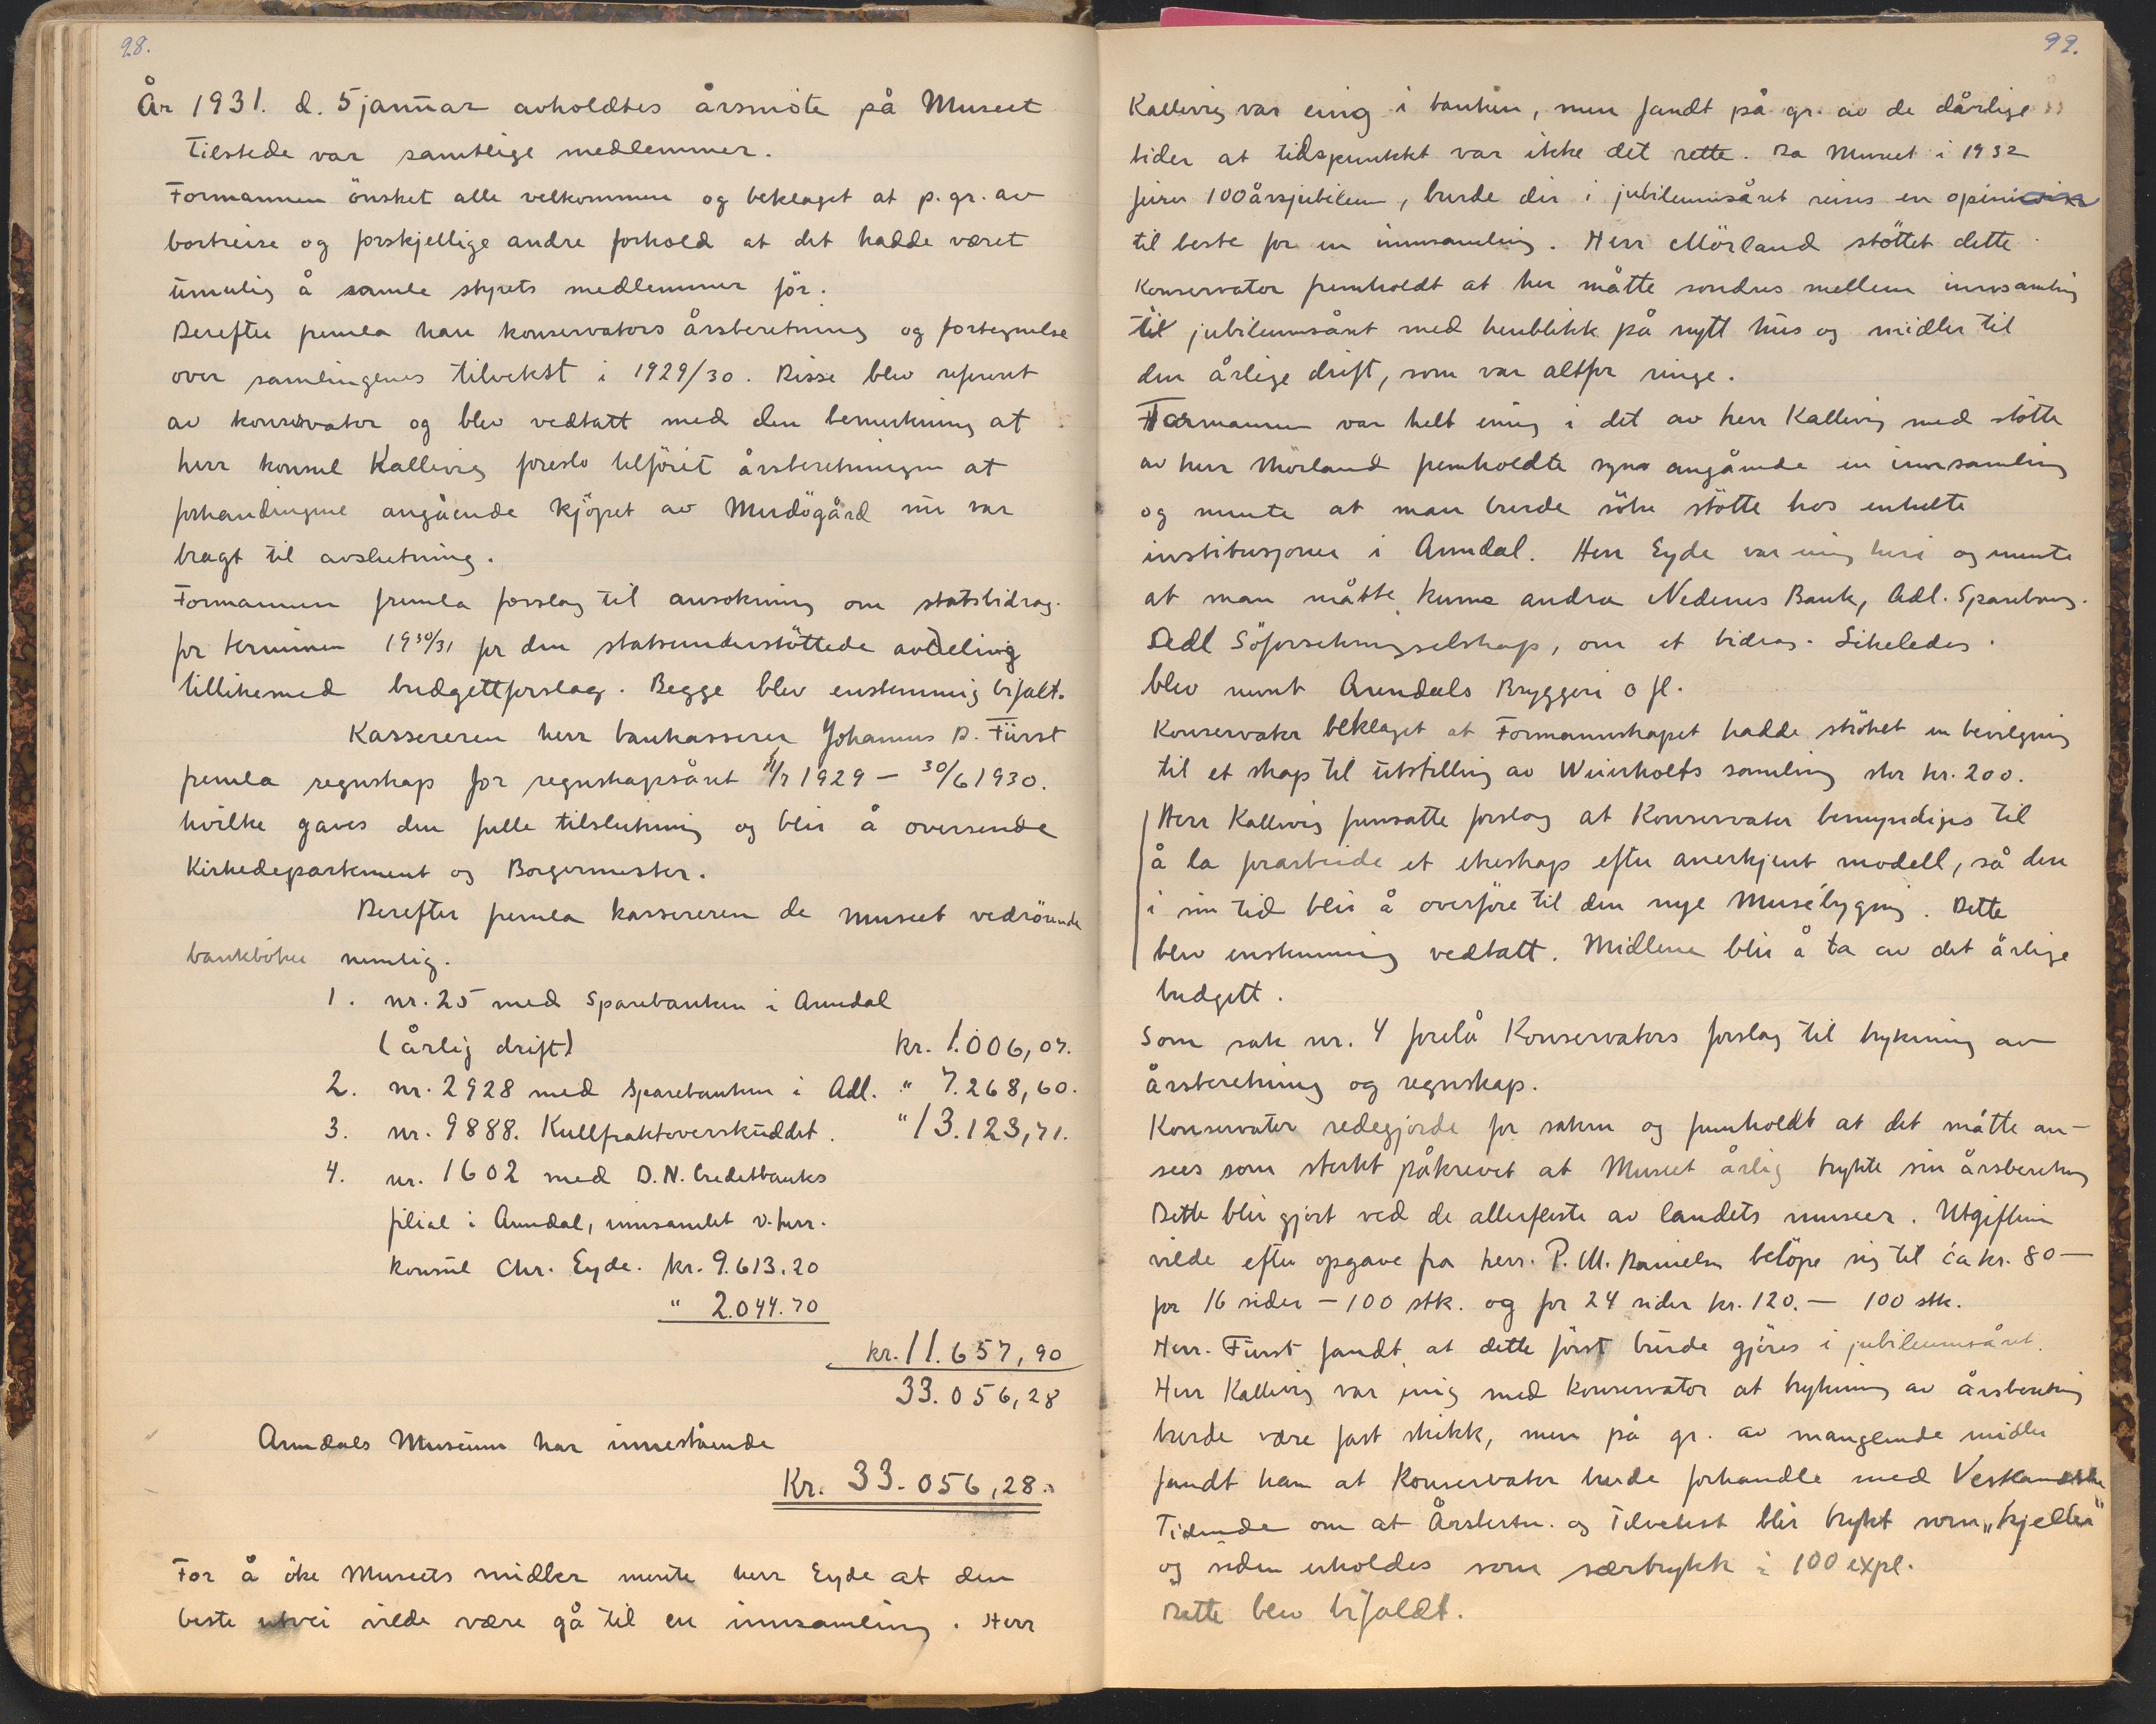 98.
År 1931. d. 5 januar avholdtes årsmöte på Museet
Tilstede var samtlige medlemmer.
Formannen önsket alle velkommen og beklaget at p. gr. av
bortreise og forskjellige andre forhold at det hadde været
umulig å samle styrets medlemmer för.
Derefter fremla han konservators årsberetning og fortegnelse
over samlingenes tilvekst i 1929/30. Disse blev referert
av konservator og blev vedtatt med den bemerkning at
herr konsul Kallevig foreslo tilföiet årsberetningen at
forhandlingene angående kjöpet av Merdögård nu var
bragt til avslutning.
Formannen fremla forslag til ansökning om statsbidrag
for terminen 1930/31 for den statsunderstöttede avdeling
tillikemed budgettforslag. Begge blev enstemmig bifalt.
Kassereren herr bankkasserer Johannes D. Fürst
fremla regnskap for regnskapsåret 1/7 1929 – 30/6 1930.
hvilke gaves den fulle tilslutning og blir å oversende
Kirkedepartement og Borgermester.
Derefter fremla kassereren de museet vedrörende
bankböker nemlig.
1. nr. 25 med Sparebanken i Arendal
(årlig drift) kr. 1.006,07.
2. nr. 2928 med Sparebanken i Adl. " 7.268,60.
3. nr. 9888. Kullfraktoverskuddet. " 13.123,71.
4. nr. 1602 med D. N. Creditbanks
filial i Arendal, innsamlet v. herr.
konsul Chr. Eyde. kr. 9.613.20
" 2.044.70
kr. 11.657,90
33.056,28
Arendals Museum har innestående
Kr. 33.056,28.
For å öke Museets midler mente herr Eyde at den
beste utvei vilde være gå til en innsamling. Herr
99.
Kallevig var enig i tanken, men fandt på gr. av de dårlige
tider at tidspunktet var ikke det rette. Da Museet i 1932
feirer 100årsjubileum, burde der i jubileumsåret reises en opinion
til beste for en innsamling. Herr Mörland stöttet dette.
Konservator fremholdt at her måtte sondres mellem innsamling
til jubileumsåret med henblikk på nytt hus og midler til
den årlige drift, som var altfor ringe.
Formannen var helt enig i det av herr Kallevig med stötte
av herr Mörland fremholdte syn angående en innsamling
og mente at man burde söke stötte hos enkelte
institusjoner i Arendal. Herr Eyde var enig heri og mente
at man måtte kunne andra Nedenes Bank, Adl. Sparebank.
Adl Söforsikringselskap, om et bidrag. Likeledes
blev nevnt Arendals Bryggeri o fl.
Konservator beklaget at Formannskapet hadde ströket en bevilgning
til et skap til utstilling av Weierholts samling stor kr. 200.
Herr Kallevig fremsatte forslag at Konservator bemyndiges til
å la forarbeide et ekeskap efter anerkjent modell, så den
i sin tid blir å overföre til den nye Musébygning. Dette
blev enstemmig vedtatt. Midlene blir å ta av det årlige
budgett.
Som sak nr. 4 forelå Konservators forslag til trykning av
årsberetning og regnskap.
Konservator redegjorde for saken og fremholdt at det måtte an-
sees som sterkt påkrevet at Museet årlig trykte sin årsberetning
Dette blir gjort ved de allerfleste av landets museer. Utgiftene
vilde efter opgave fra herr. P. M. Danielsen belöpe sig til ca kr. 80 —
for 16 sider – 100 stk. og for 24 sider kr. 120. — 100 stk.
Herr. Fürst fandt at dette först burde gjöres i jubileumsåret.
Herr Kallevig var enig med konservator at trykning av årsberetning
burde være fast skikk, men på gr. av manglende midler
fandt han at Konservator burde forhandle med Vestlandske
Tidende om at Årsberetn. og Tilvekst blir trykt som „kjeller"
og siden erholdes som særtrykk i 100 expl.
Dette blev bifaldt.